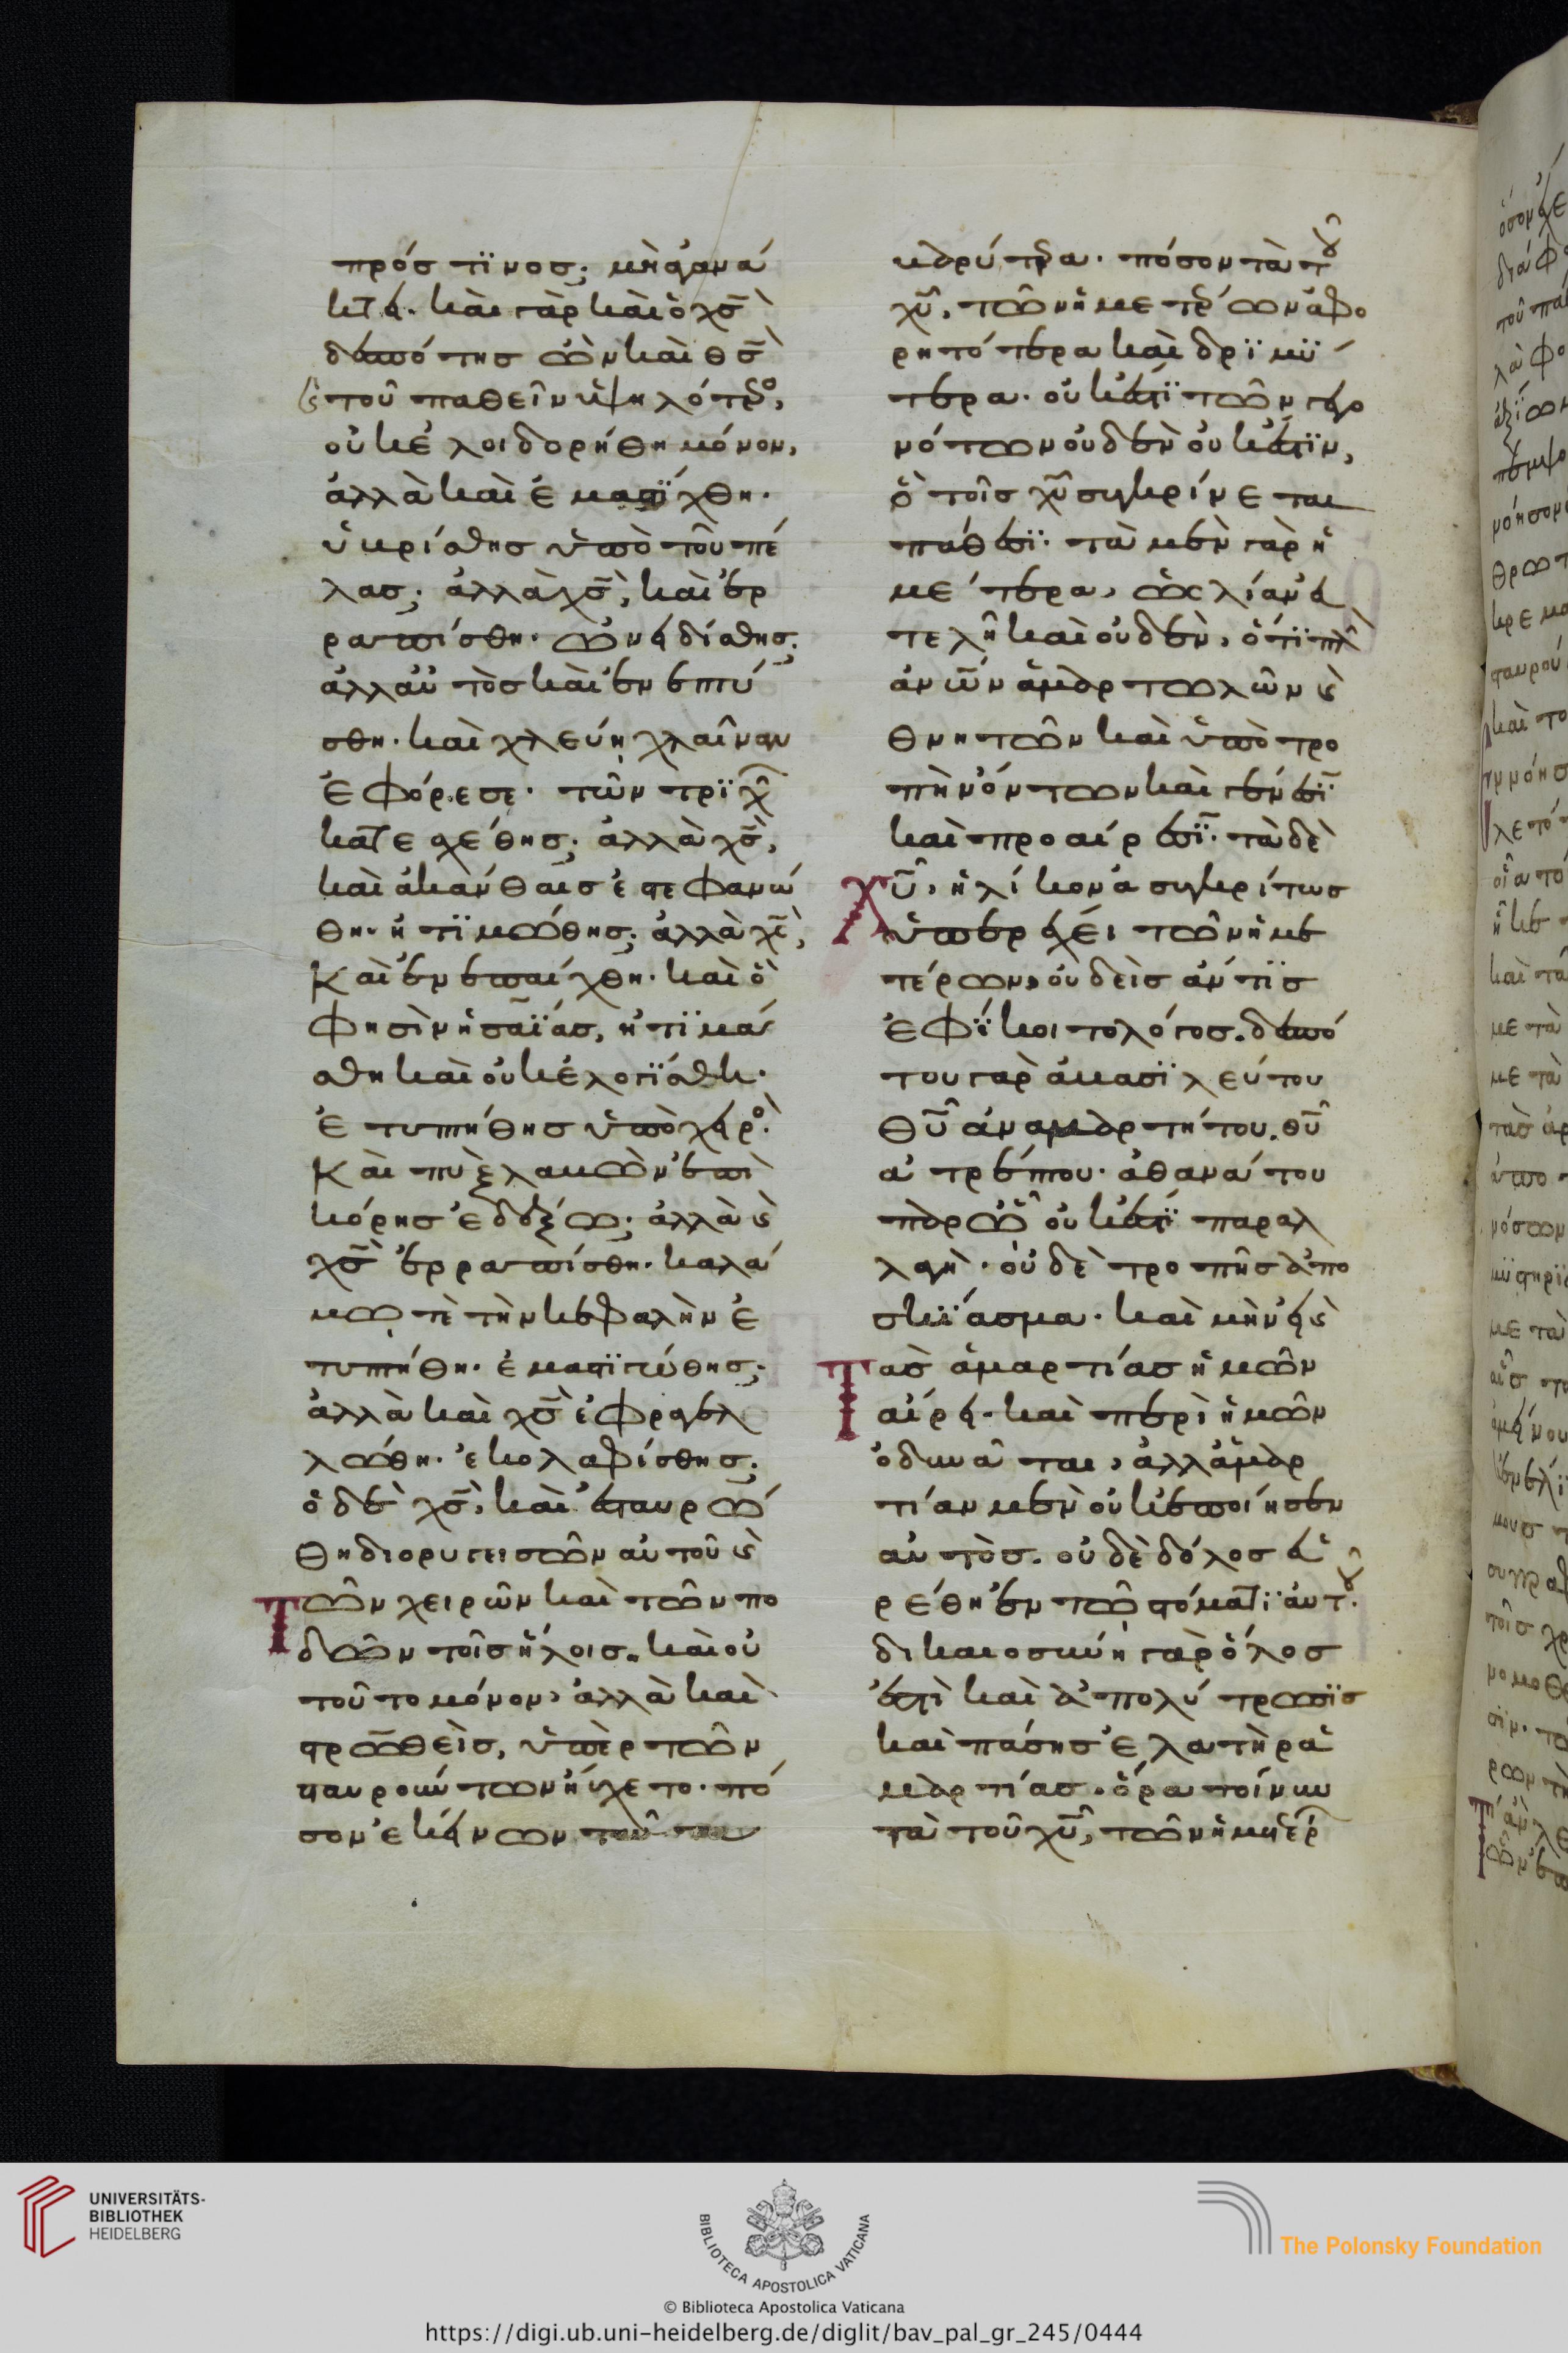 πρόσ τϊνος; μὴ ἀγανά
κτει· καὶ γὰρ καὶ ὁ χσ̄
δεσπότησ ὢν καὶ θσ̄
τοῦ παθεῖν ὑψηλότερο,
οὐκ ἐλοιδορήθη μόνον,
ἀλλὰ καὶ ἐμαστϊχθη·
ὑβρίσθησ ὑπὸ τοῦ πέ
λασ; ἀλλὰ χσ̄, καὶ ἐρ
ραπίσθη· ὠνειδίσθησ;
ἀλλ αὐτὸσ καὶ ἐνεπτύ
σθη· καὶ χλεύη χλαῖναν
ἐφόρεσε· τῶν τρϊχ
κατεχέθησ; ἀλλὰ χσ̄,
καὶ ἀκάνθαισ ἐστεφανώ
θη· ἠτϊμώθησ; ἀλλὰ χσ̄,
Καὶ ἐνεπαίχθη· καὶ ὃ
φησὶν ἡσαΐασ, ἠτϊμά
σθη καὶ οὐκ ἐλογϊσθη·
ἐτυπτήθησ ὑπὸ χειρο·
Καὶ πὺξ λαβὼν ἐπὶ
κόρησ ἐδόξω; ἀλλὰ καὶ
χσ̄ ἐρραπίσθη· καλά
μω τὲ τὴν κεφαλὴν ἐ
τυπτήθη· ἐμαστϊγώθησ;
ἀλλὰ καὶ χσ̄ ἐφραγελ
λώθη· ἐκολαφίσθησ;
ὁ δὲ χσ̄, καὶ ἐσταυρώ
θη διορυγεισῶν αὐτοῦ καὶ
Τῶν χειρῶν καὶ τῶν πο
δῶν τοῖσ ἥλοισ. καὶ οὐ
τοῦτο μόνον, ἀλλὰ καὶ
στρωθεὶσ, ὑπὲρ τῶν
σταυρούντων ηὔχετο· πό
σον ἐκείνων τοῦ
βαρύτερα· πόσον τὰ τοῦ
χῡ, τῶν ἡμετέρων ἀφο
ρητότερα καὶ δρϊμϋ
τερα· οὐκ ἔστϊ τῶν γεγο
νότων οὐδὲν οὐκ ἔστϊν,
ὃ τοῖσ χῡ συγκρίνεται
πάθεσϊ· τὰ μὲν γὰρ ἡ
μέτερα, ὡς λίαν εὐ
τελῆ καὶ οὐδὲν, ὅτϊπερ
ἀνω̄ν ἁμαρτωλῶν καὶ
θνητῶν καὶ ὑπὸ τρο
πὴν ὄντων καὶ γενέσϊ
καὶ προαιρέσϊ· τὰ δὲ
χῡ, ἡλίκον ἀσυγκρίτωσ
ὑπερέχει τῶν ἡμε
τέρων, οὐδεὶσ ἄν τϊσ
ἐφΐκοιτο λόγοσ. δεσπό
του γὰρ ἀβασϊλεύτου
θῡ ἀναμαρτήτου. θῡ
ἀτρέπτου· ἀθανάτου
παρ ὧ οὐκ ἔστϊ παραλ
λαγὴ· οὐδὲ τροπῆσ ἀπο
σκϊασμα· καὶ μὴν εἰ καὶ
Τὰσ ἁμαρτίασ ἡμῶν
αἴρει· καὶ περὶ ἡμῶν
ὀδυνᾶται, ἀλλ ἁμαρ
τίαν μὲν οὐκ ἐποίησεν
αὐτὸσ. οὐδὲ δόλοσ εὑ
ρέθη ἐν τῶ στόματϊ αὐτοῦ.
δικαιοσύνη γὰρ ὅλοσ
ἐστὶ καὶ ἀπολύτρωσϊσ
καὶ πάσησ ἐλατὴρ ἁ
μαρτίασ. ὅρα τοίνυν
τὰ τοῦ χῡ, τῶν ἡμετέρ
UNIVERSITÄTS-
BIBLIOTHEK
HEIDELBERG
BIBLIOTECA APOSTOLICA VATICANA
The Polonsky Foundation
© Biblioteca Apostolica Vaticana
https://digi.ub.uni-heidelberg.de/diglit/bav_pal_gr_245/0444